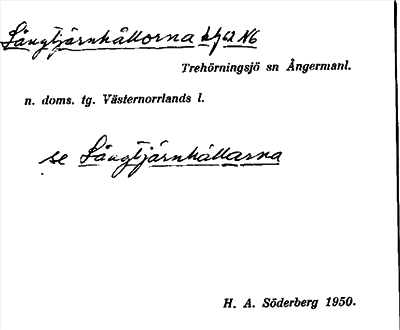 Långtjärnhållorna
Trehörningsjö sn Ångermanl.
n. doms. tg. Västernorrlands l.
se Långtjärnhällarna
H. A. Söderberg 1950.